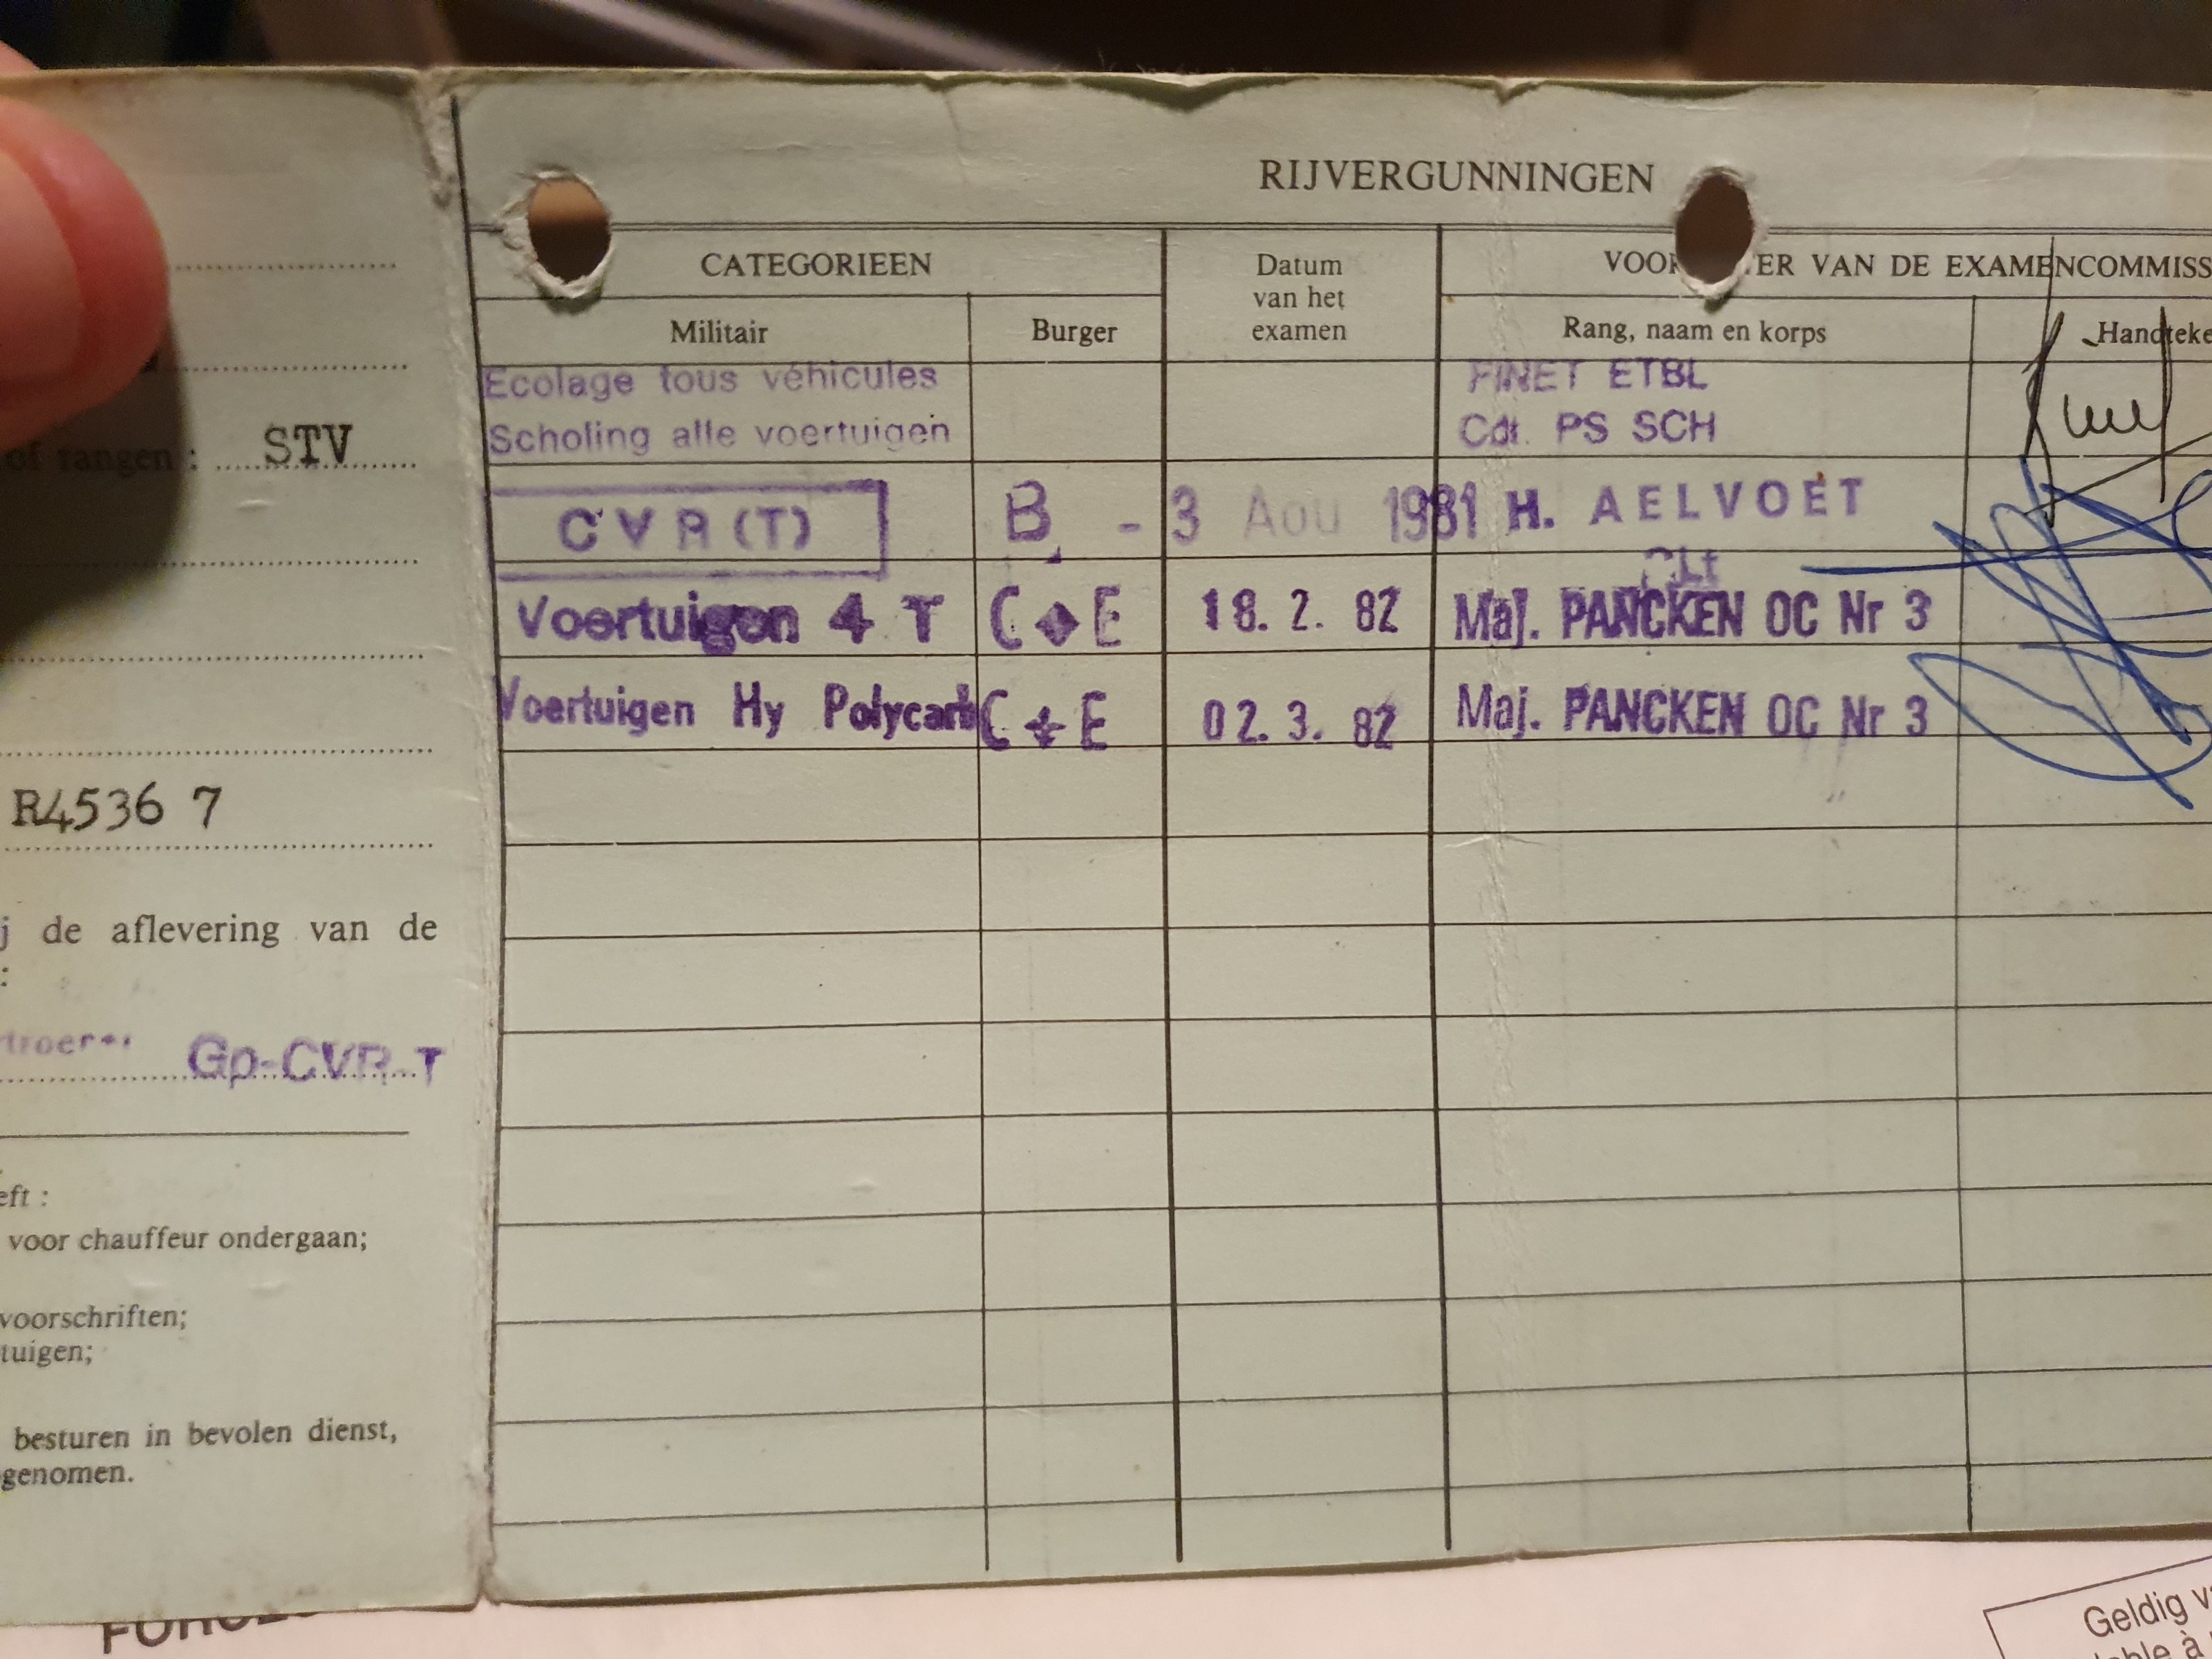 of rangen : STV
R4536 7
de aflevering van de
:
Gp-CVR-T
voor chauffeur ondergaan;
voorschriften;
besturen in bevolen dienst,
RIJVERGUNNINGEN
CATEGORIEEN
Datum
van het
examen
VAN DE EXAMENCOMMISS
Militair
Burger
Rang, naam en korps
Handteke
Ecolage tous véhicules
Scholing alle voertuigen
PINET ETBL
Cdt. PS SCH
CVR(T) B - 3 Aou 1981 H. AELVOET
Voertuigen 4 T C + E 18. 2. 82 Maj. PANCKEN OC Nr 3
Voertuigen Hy Polycarb C + E 02. 3. 82 Maj. PANCKEN OC Nr 3
Geldig